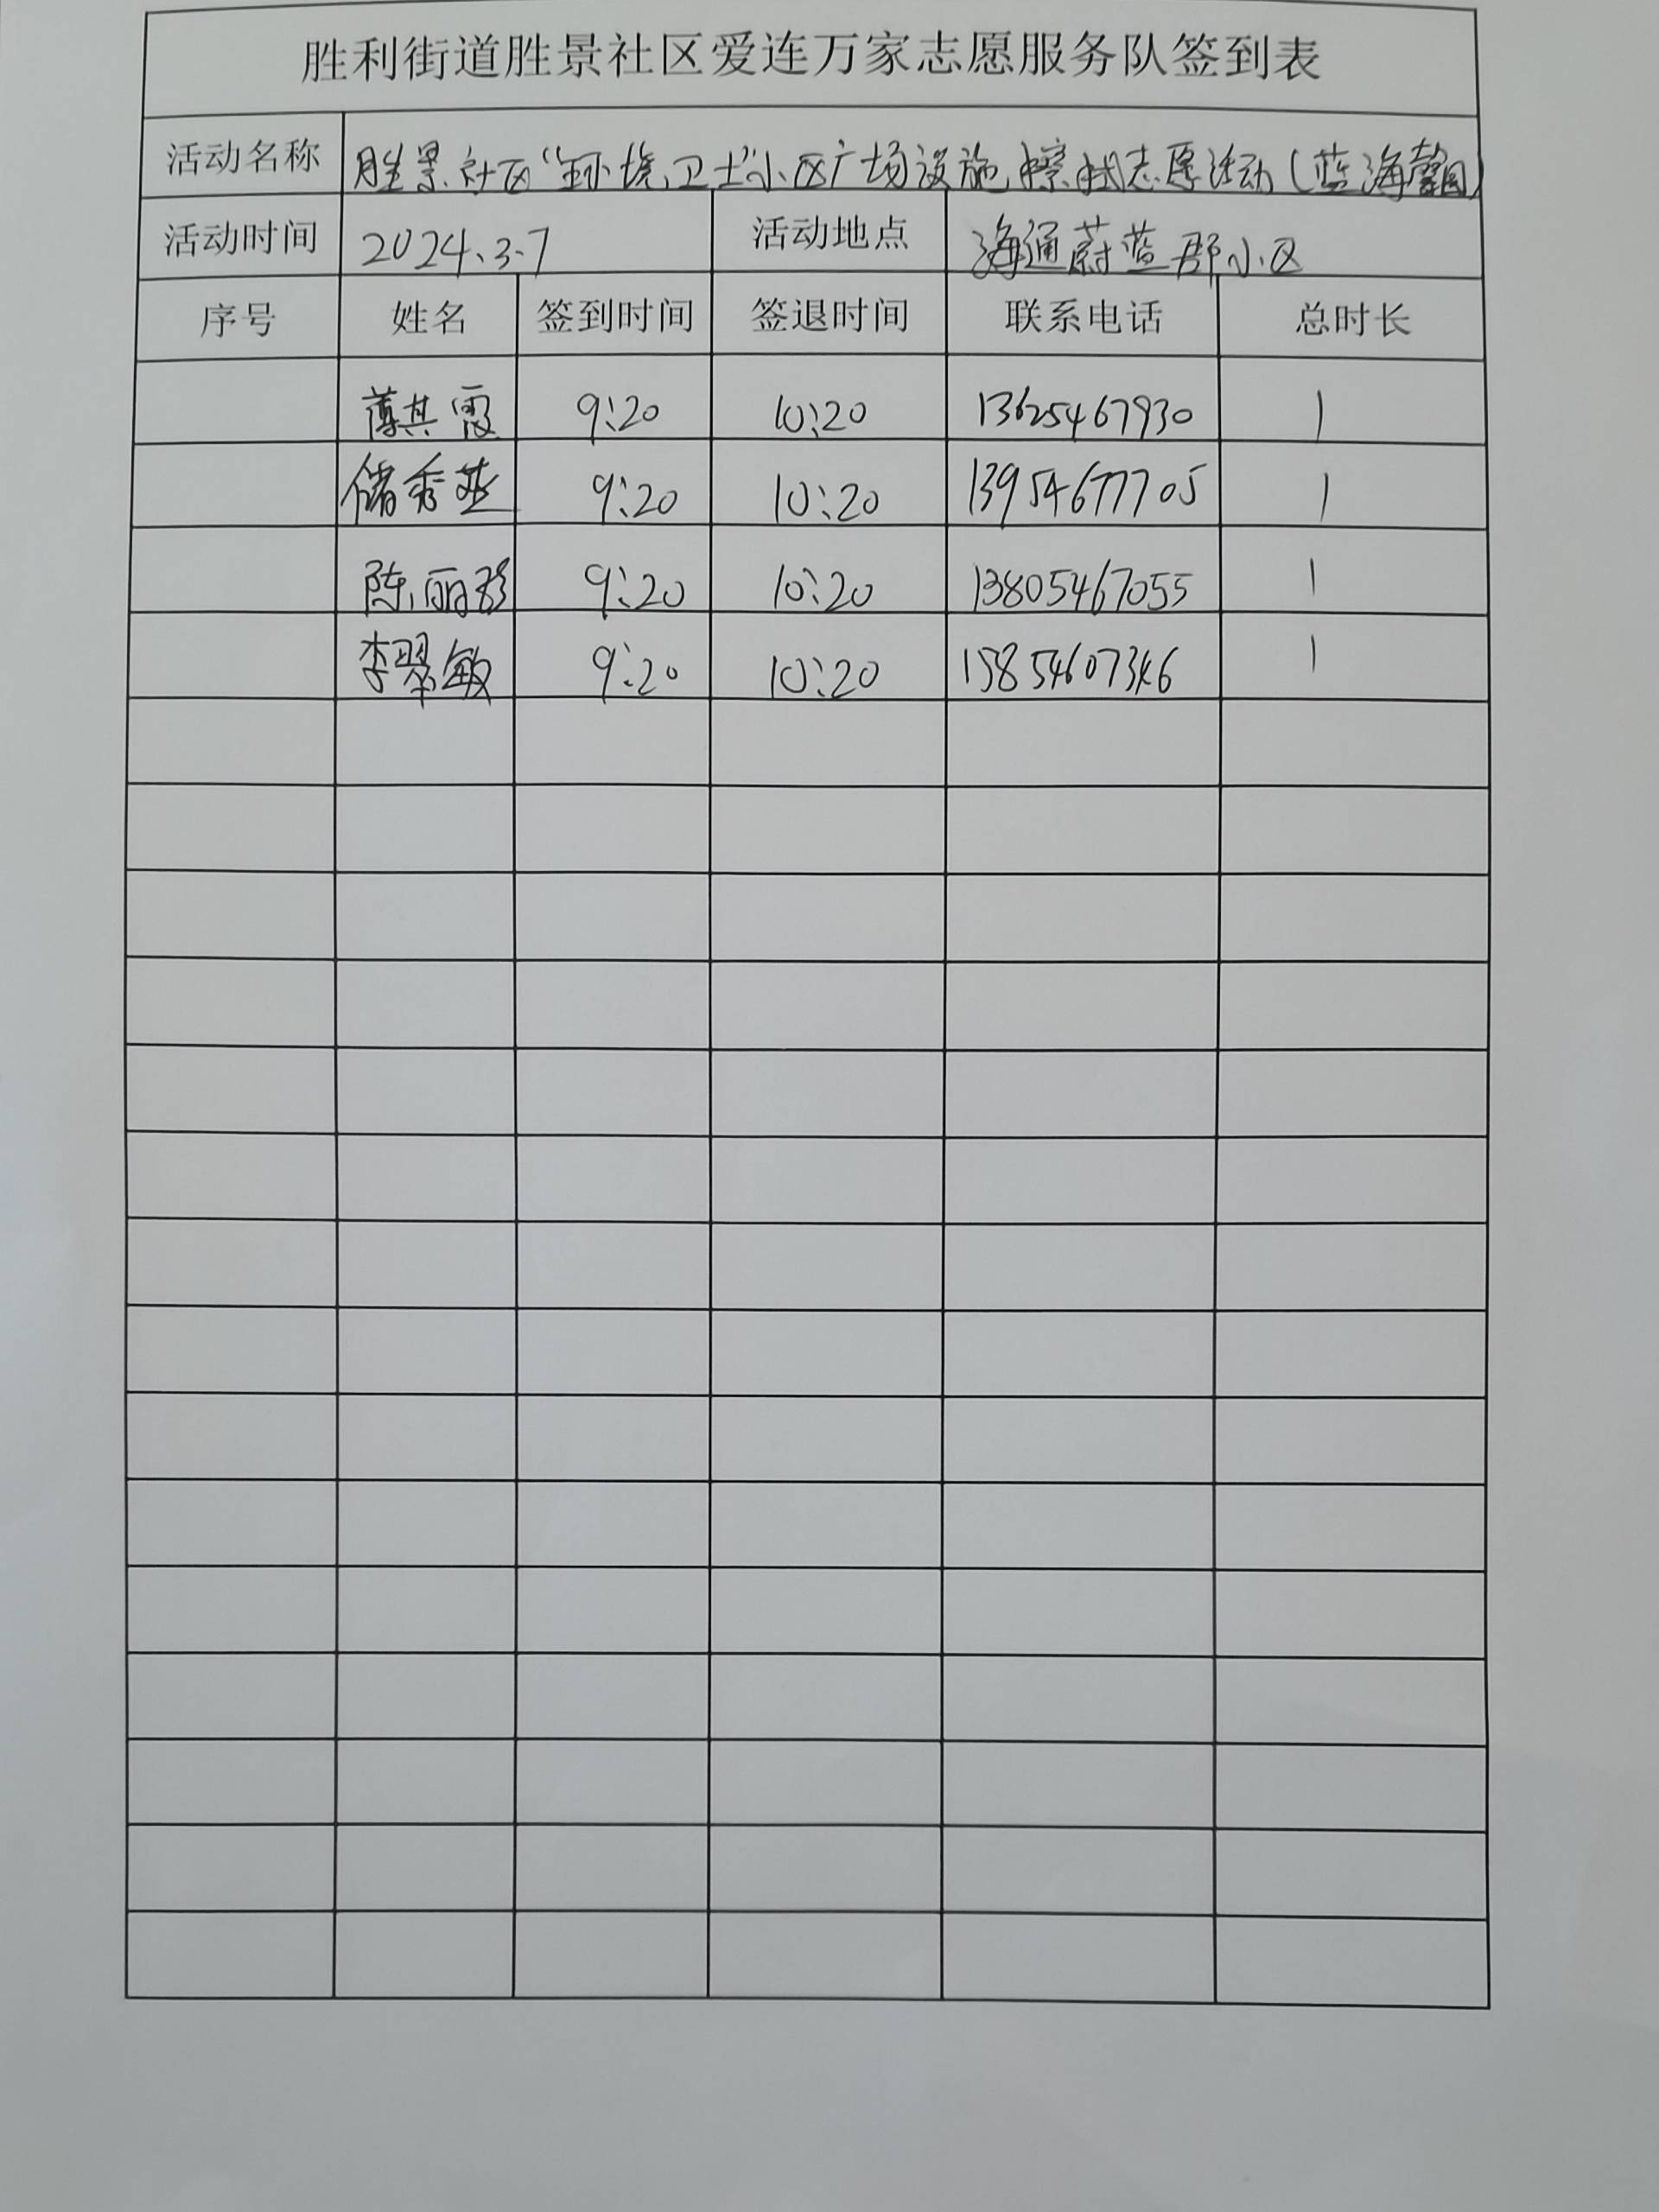 胜利街道胜景社区爱连万家志愿服务队签到表
活动名称 胜景社区“环境卫士”小区广场设施擦拭志愿活动(蓝海馨园)
活动时间 2024.3.7 活动地点 海通蔚蓝郡小区
序号 姓名 签到时间 签退时间 联系电话 总时长
薄其霞 9:20 10:20 13625467930 1
储秀燕 9:20 10:20 13954677705 1
陈丽珍 9:20 10:20 13805467055 1
李翠敏 9:20 10:20 15854607346 1